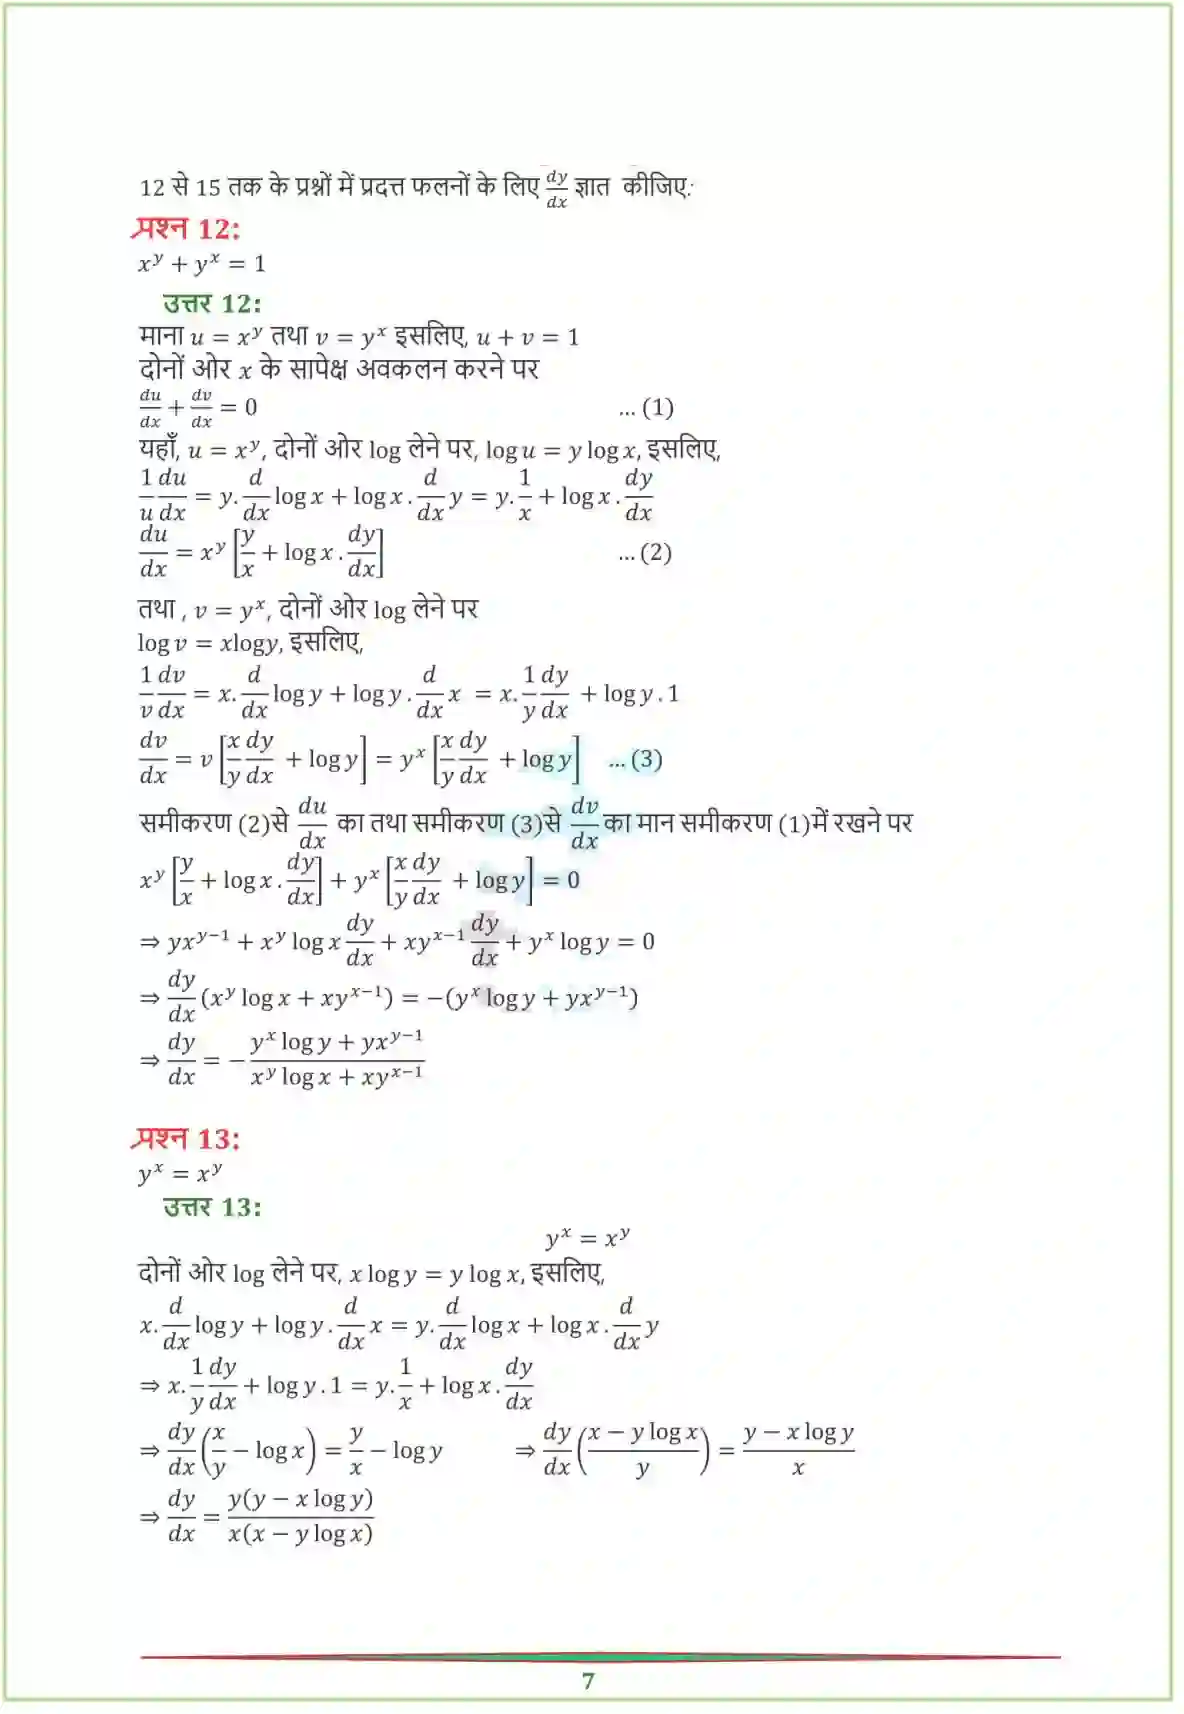 12 से 15 तक के प्रश्नों में प्रदत्त फलनों के लिए dy/dx ज्ञात कीजिए:
प्रश्न 12:
x^y + y^x = 1
उत्तर 12:
माना u = x^y तथा v = y^x इसलिए, u + v = 1
दोनों ओर x के सापेक्ष अवकलन करने पर
du/dx + dv/dx = 0 … (1)
यहाँ, u = x^y, दोनों ओर log लेने पर, log u = y log x, इसलिए,
1/u du/dx = y. d/dx log x + log x . d/dx y = y. 1/x + log x . dy/dx
du/dx = x^y [y/x + log x . dy/dx] … (2)
तथा , v = y^x, दोनों ओर log लेने पर
log v = xlogy, इसलिए,
1/v dv/dx = x. d/dx log y + log y . d/dx x = x. 1/y dy/dx + log y . 1
dv/dx = v [x/y dy/dx + log y] = y^x [x/y dy/dx + log y] … (3)
समीकरण (2)से du/dx का तथा समीकरण (3)से dv/dx का मान समीकरण (1)में रखने पर
x^y [y/x + log x . dy/dx] + y^x [x/y dy/dx + log y] = 0
⇒ yx^(y−1) + x^y log x dy/dx + xy^(x−1) dy/dx + y^x log y = 0
⇒ dy/dx (x^y log x + xy^(x−1)) = −(y^x log y + yx^(y−1))
⇒ dy/dx = − (y^x log y + yx^(y−1))/(x^y log x + xy^(x−1))
प्रश्न 13:
y^x = x^y
उत्तर 13:
y^x = x^y
दोनों ओर log लेने पर, x log y = y log x, इसलिए,
x. d/dx log y + log y . d/dx x = y. d/dx log x + log x . d/dx y
⇒ x. 1/y dy/dx + log y . 1 = y. 1/x + log x . dy/dx
⇒ dy/dx (x/y − log x) = y/x − log y ⇒ dy/dx ((x − y log x)/y) = (y − x log y)/x
⇒ dy/dx = y(y − x log y)/x(x − y log x)
7